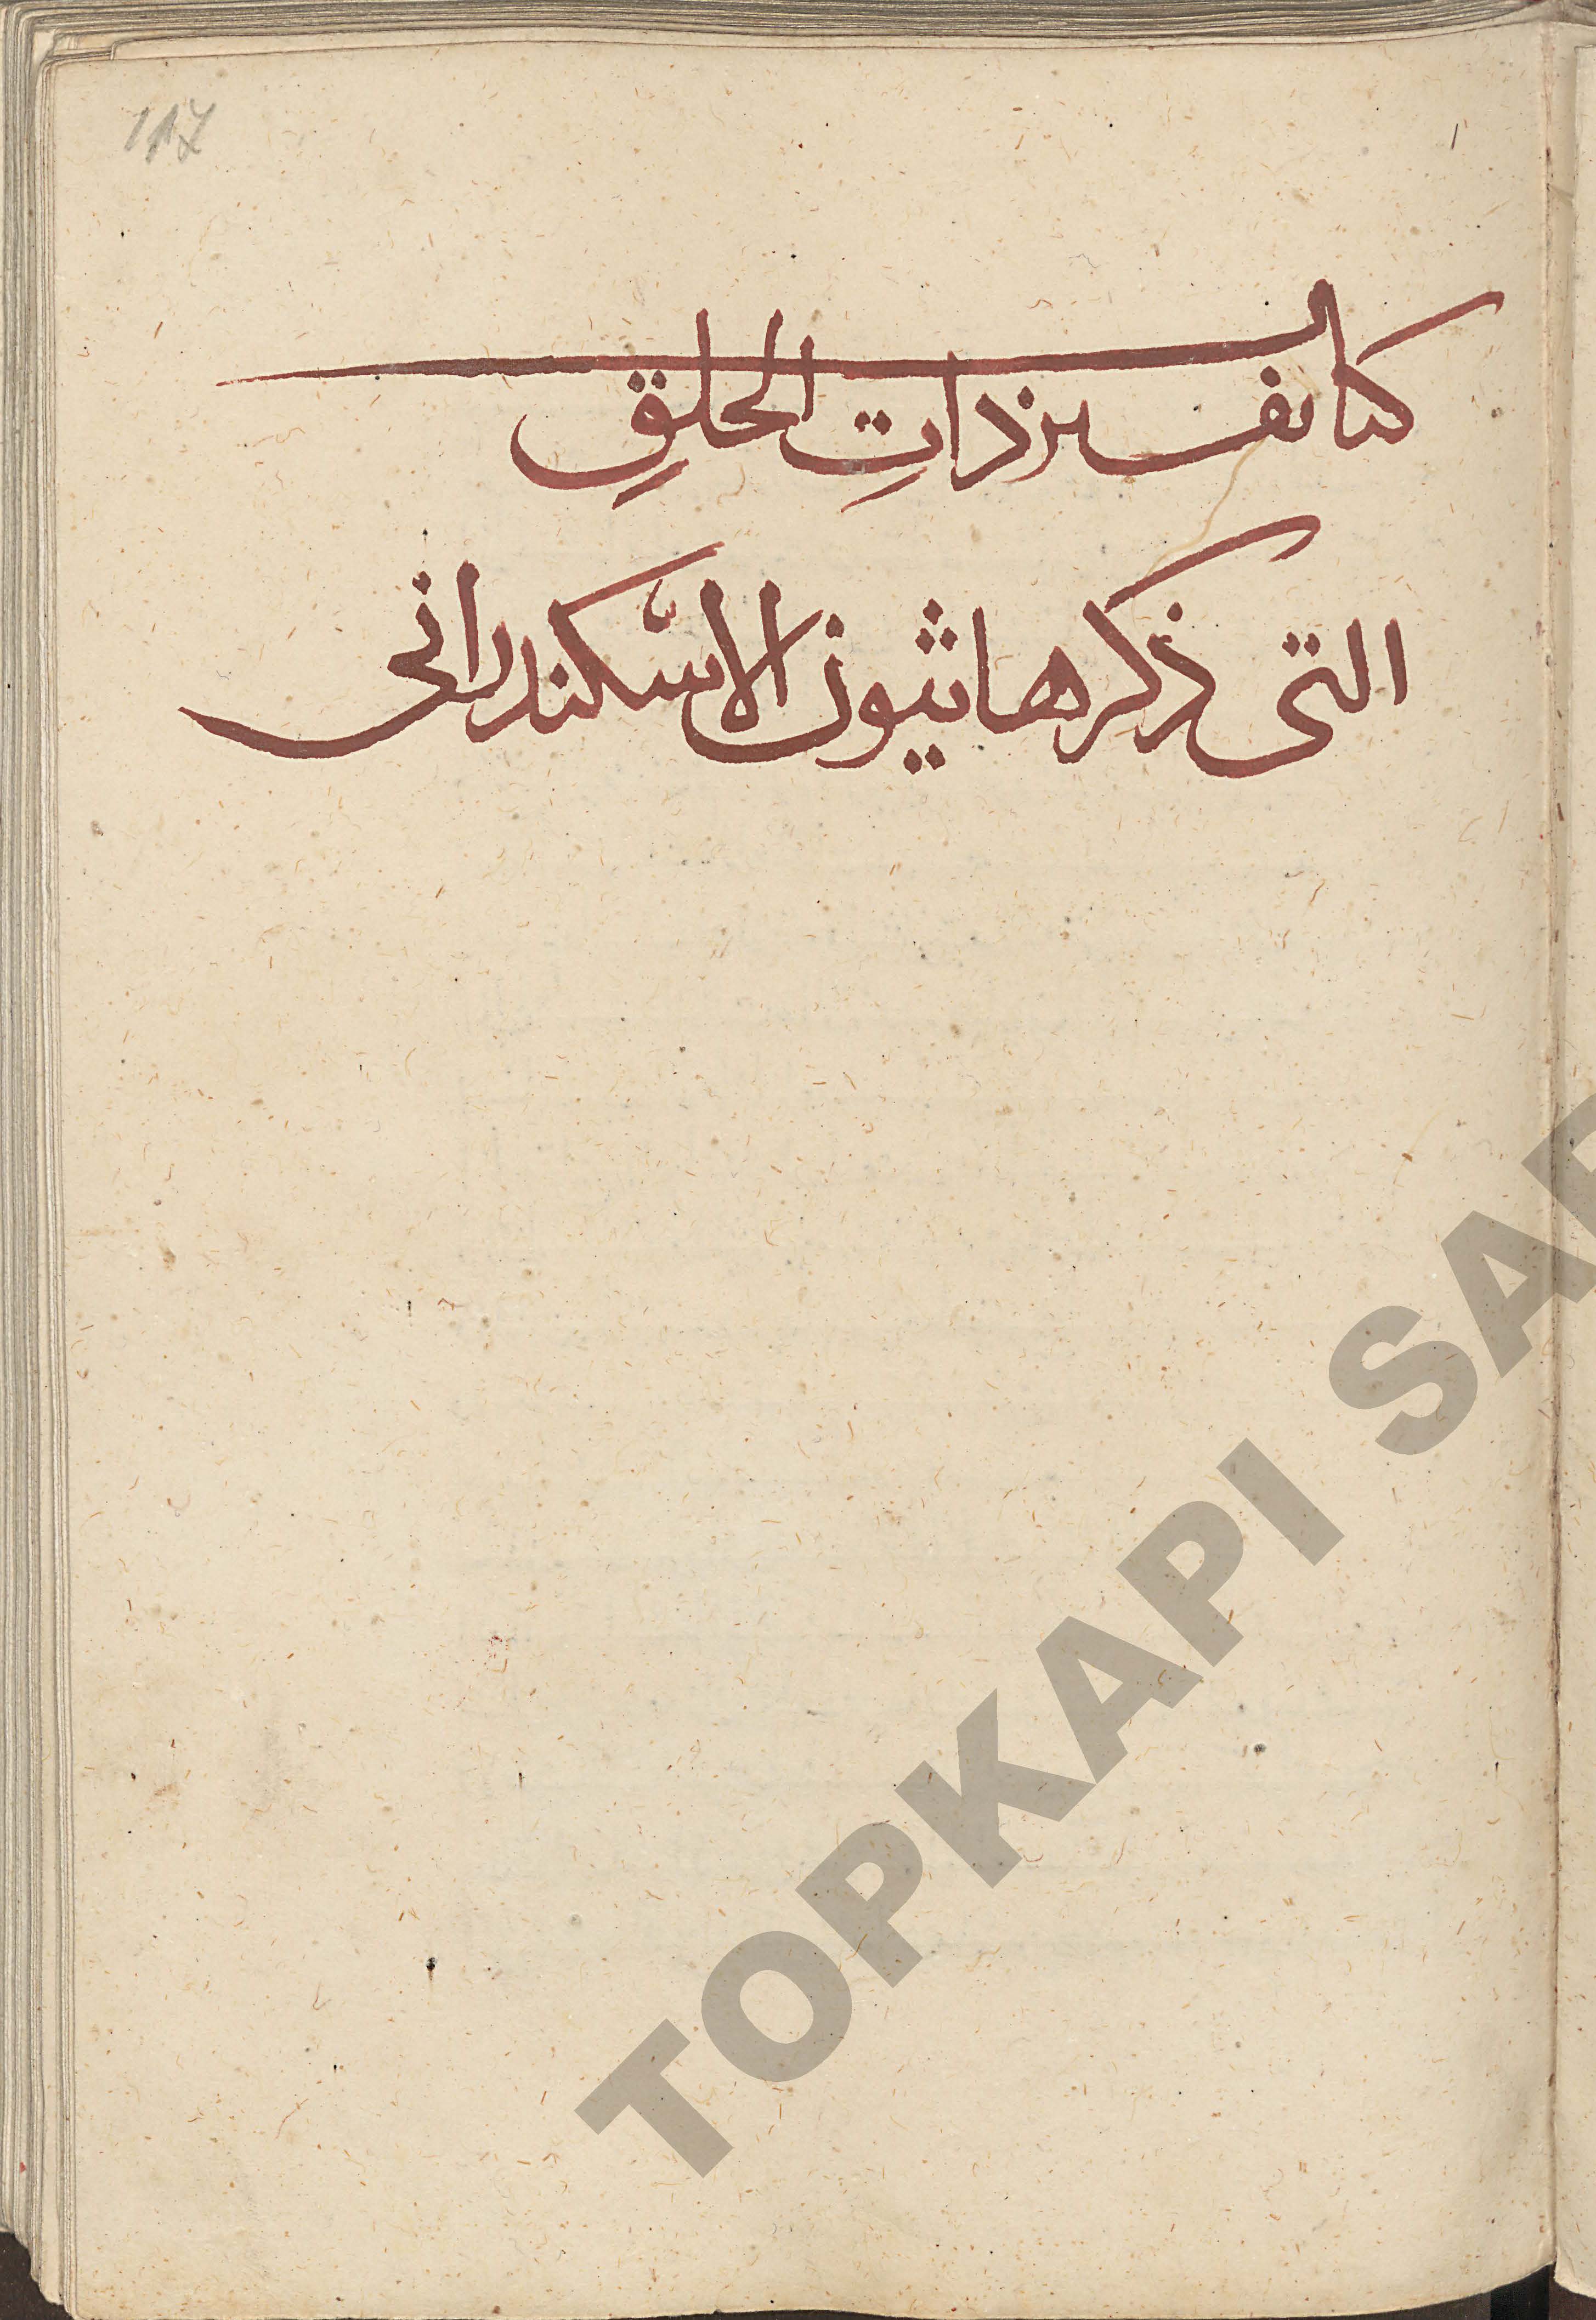 117
كتاب تفسير ذاتِ الحلقِ
التى ذكرها ثيون الاسكندرانى
TOPKAPI SAR